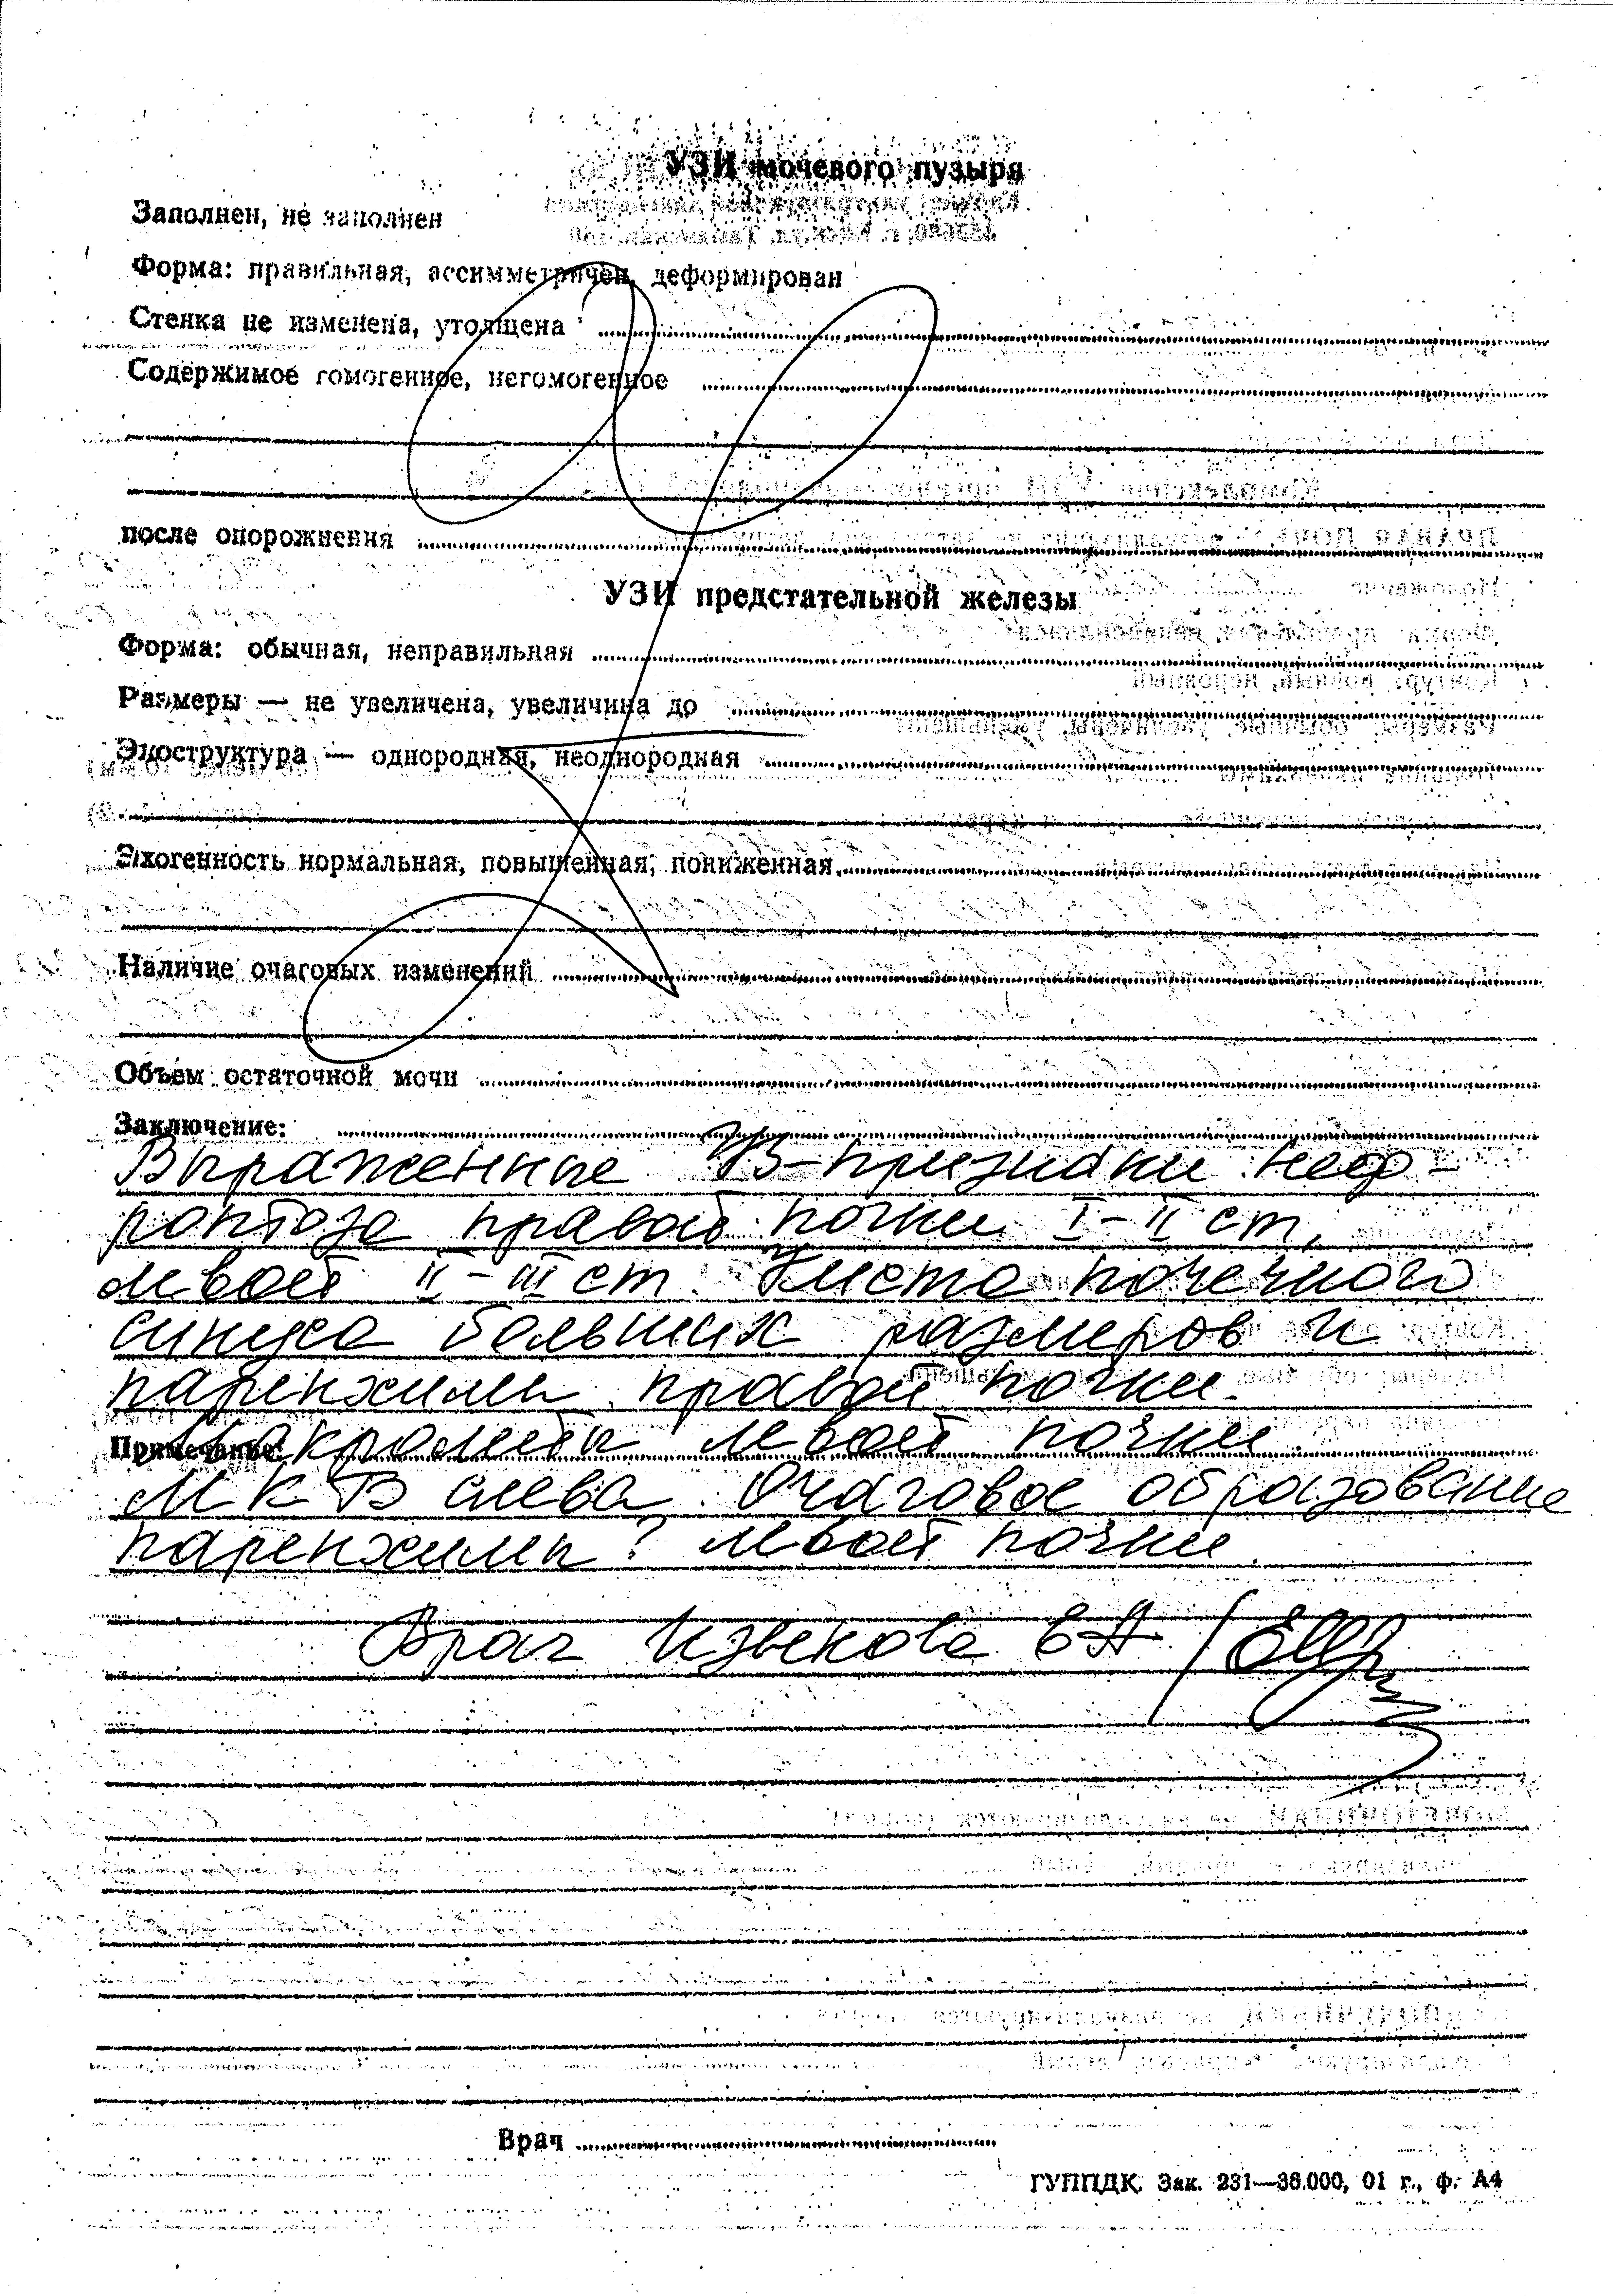 УЗИ мочевого пузыря
Заполнен, не заполнен
Форма: правильная, ассимметричен, деформирован
Стенка не изменена, утолщена
Содержимое гомогенное, негомогенное
после опорожнения
УЗИ предстательной железы
Форма: обычная, неправильная
Размеры — не увеличена, увеличина до
Эхоструктура — однородная, неоднородная
Эхогенность нормальная, повышенная, пониженная
Наличие очаговых изменений
Объем остаточной мочи
Заключение:
Выраженные УЗ-признаки неф-
роптоза правой почки I-II ст,
левой II-III ст. Киста почечного
синуса больших размеров и
паренхимы правой почки.
Примечание:
левой почки.
МКБ слева. Очаговое образование
паренхимы? левой почки.
Врач Извекова ЕА
Врач
ГУППДК. Зак. 231—36.000, 01 г., ф. А4